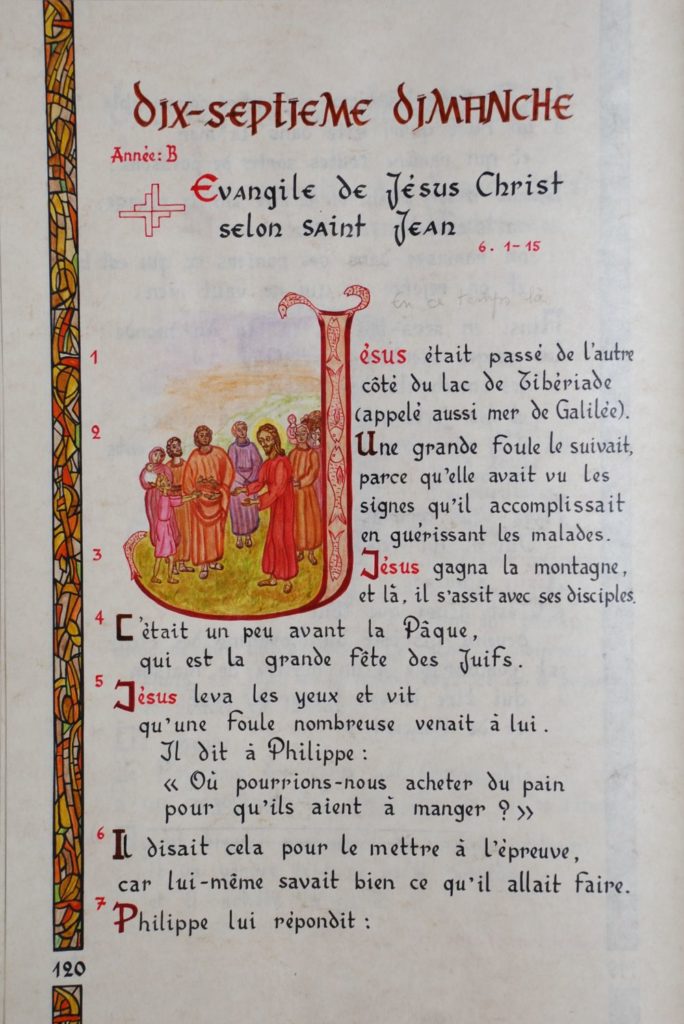 DIX-SEPTIEME DIMANCHE
Année: B
Evangile de Jésus Christ
selon saint Jean
6. 1-15
En ce temps là
1 Jésus était passé de l'autre
côté du lac de Tibériade
(appelé aussi mer de Galilée).
2 Une grande foule le suivait,
parce qu'elle avait vu les
signes qu'il accomplissait
en guérissant les malades.
3 Jésus gagna la montagne,
et là, il s'assit avec ses disciples.
4 C'était un peu avant la Pâque,
qui est la grande fête des Juifs.
5 Jésus leva les yeux et vit
qu'une foule nombreuse venait à lui.
Il dit à Philippe :
« Où pourrions-nous acheter du pain
pour qu'ils aient à manger ? »
6 Il disait cela pour le mettre à l'épreuve,
car lui-même savait bien ce qu'il allait faire.
7 Philippe lui répondit :
120